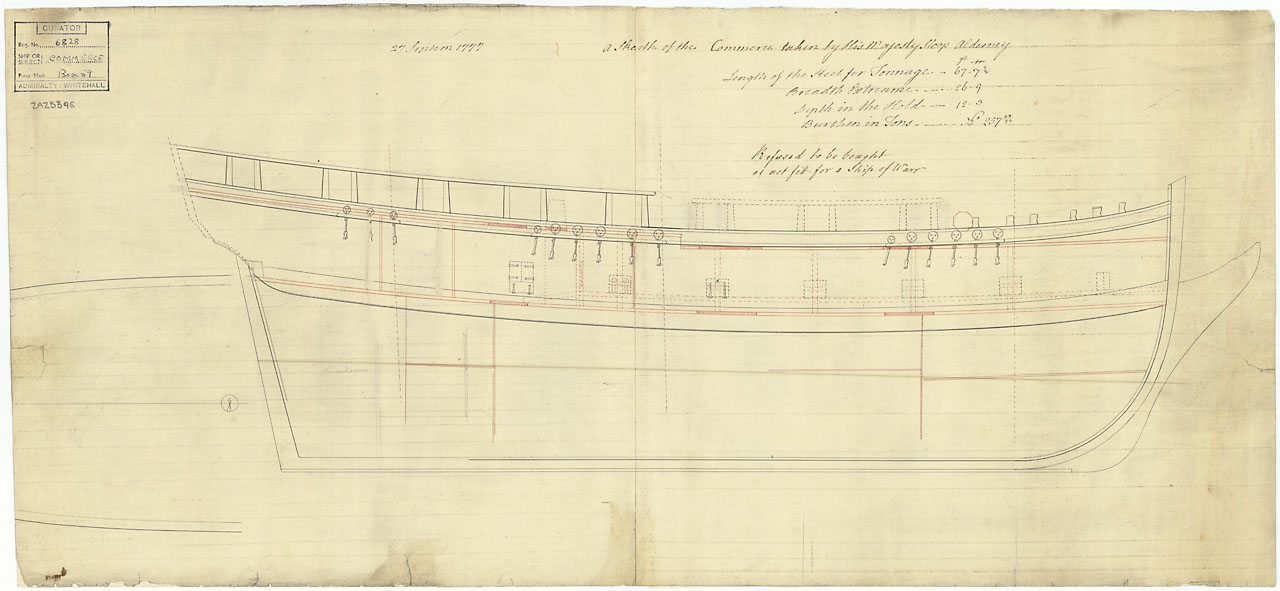 CURATOR
Reg. No. 6828
SHIP OR SUBJECT: COMMERCE
Press Mark Box 59
ADMIRALTY: WHITEHALL
ZAZ5396
27 Septem 1777
A Sketch of the Commerce taken by His Majesty Sloop Alderney
Ft In
Length of the Keel for Tonnage - 67.7
Breadth Extreame - 26.9
Depth in the Hold - 12.3
Burthen in Tons - No 257
Refused to be bought
as not fitt for a Ship of Warr